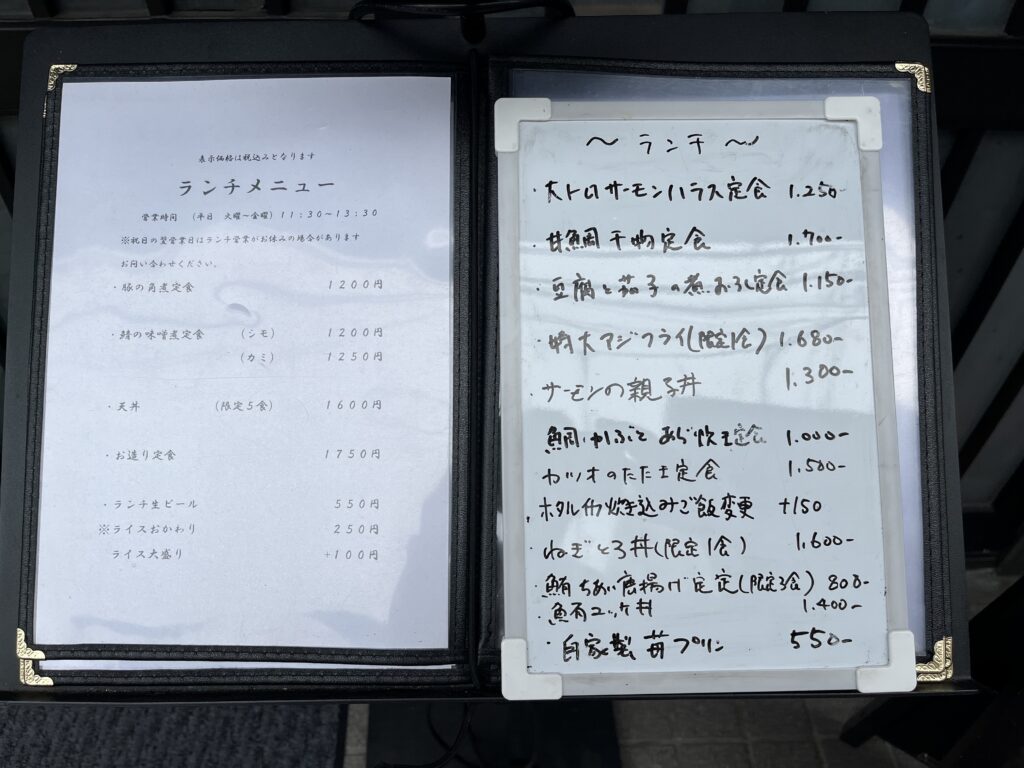 表示価格は税込みとなります
ランチメニュー
営業時間 (平日 火曜～金曜) 11:30～13:30
※祝日の翌営業日はランチ営業がお休みの場合があります
お問い合わせください。
・豚の角煮定食 1200円
・鯖の味噌煮定食 (シモ) 1200円
(カミ) 1250円
・天丼 (限定5食) 1600円
・お造り定食 1750円
・ランチ生ビール 550円
※ライスおかわり 250円
ライス大盛り +100円
～ ランチ ～
・大トロサーモンハラス定食 1.250-
・甘鯛干物定食 1.700-
・豆腐と茄子の煮おろし定食 1.150-
・特大アジフライ(限定1食) 1.680-
・サーモンの親子丼 1.300-
鯛かぶと あら炊き定食 1.000-
カツオのたたき定食 1.500-
・ホタルイカ炊き込みご飯変更 +150
・ねぎとろ丼(限定1食) 1.600-
・鮪ちあい唐揚げ定定(限定3食) 800-
・鮪ユッケ丼 1.400-
・自家製 苺プリン 550-